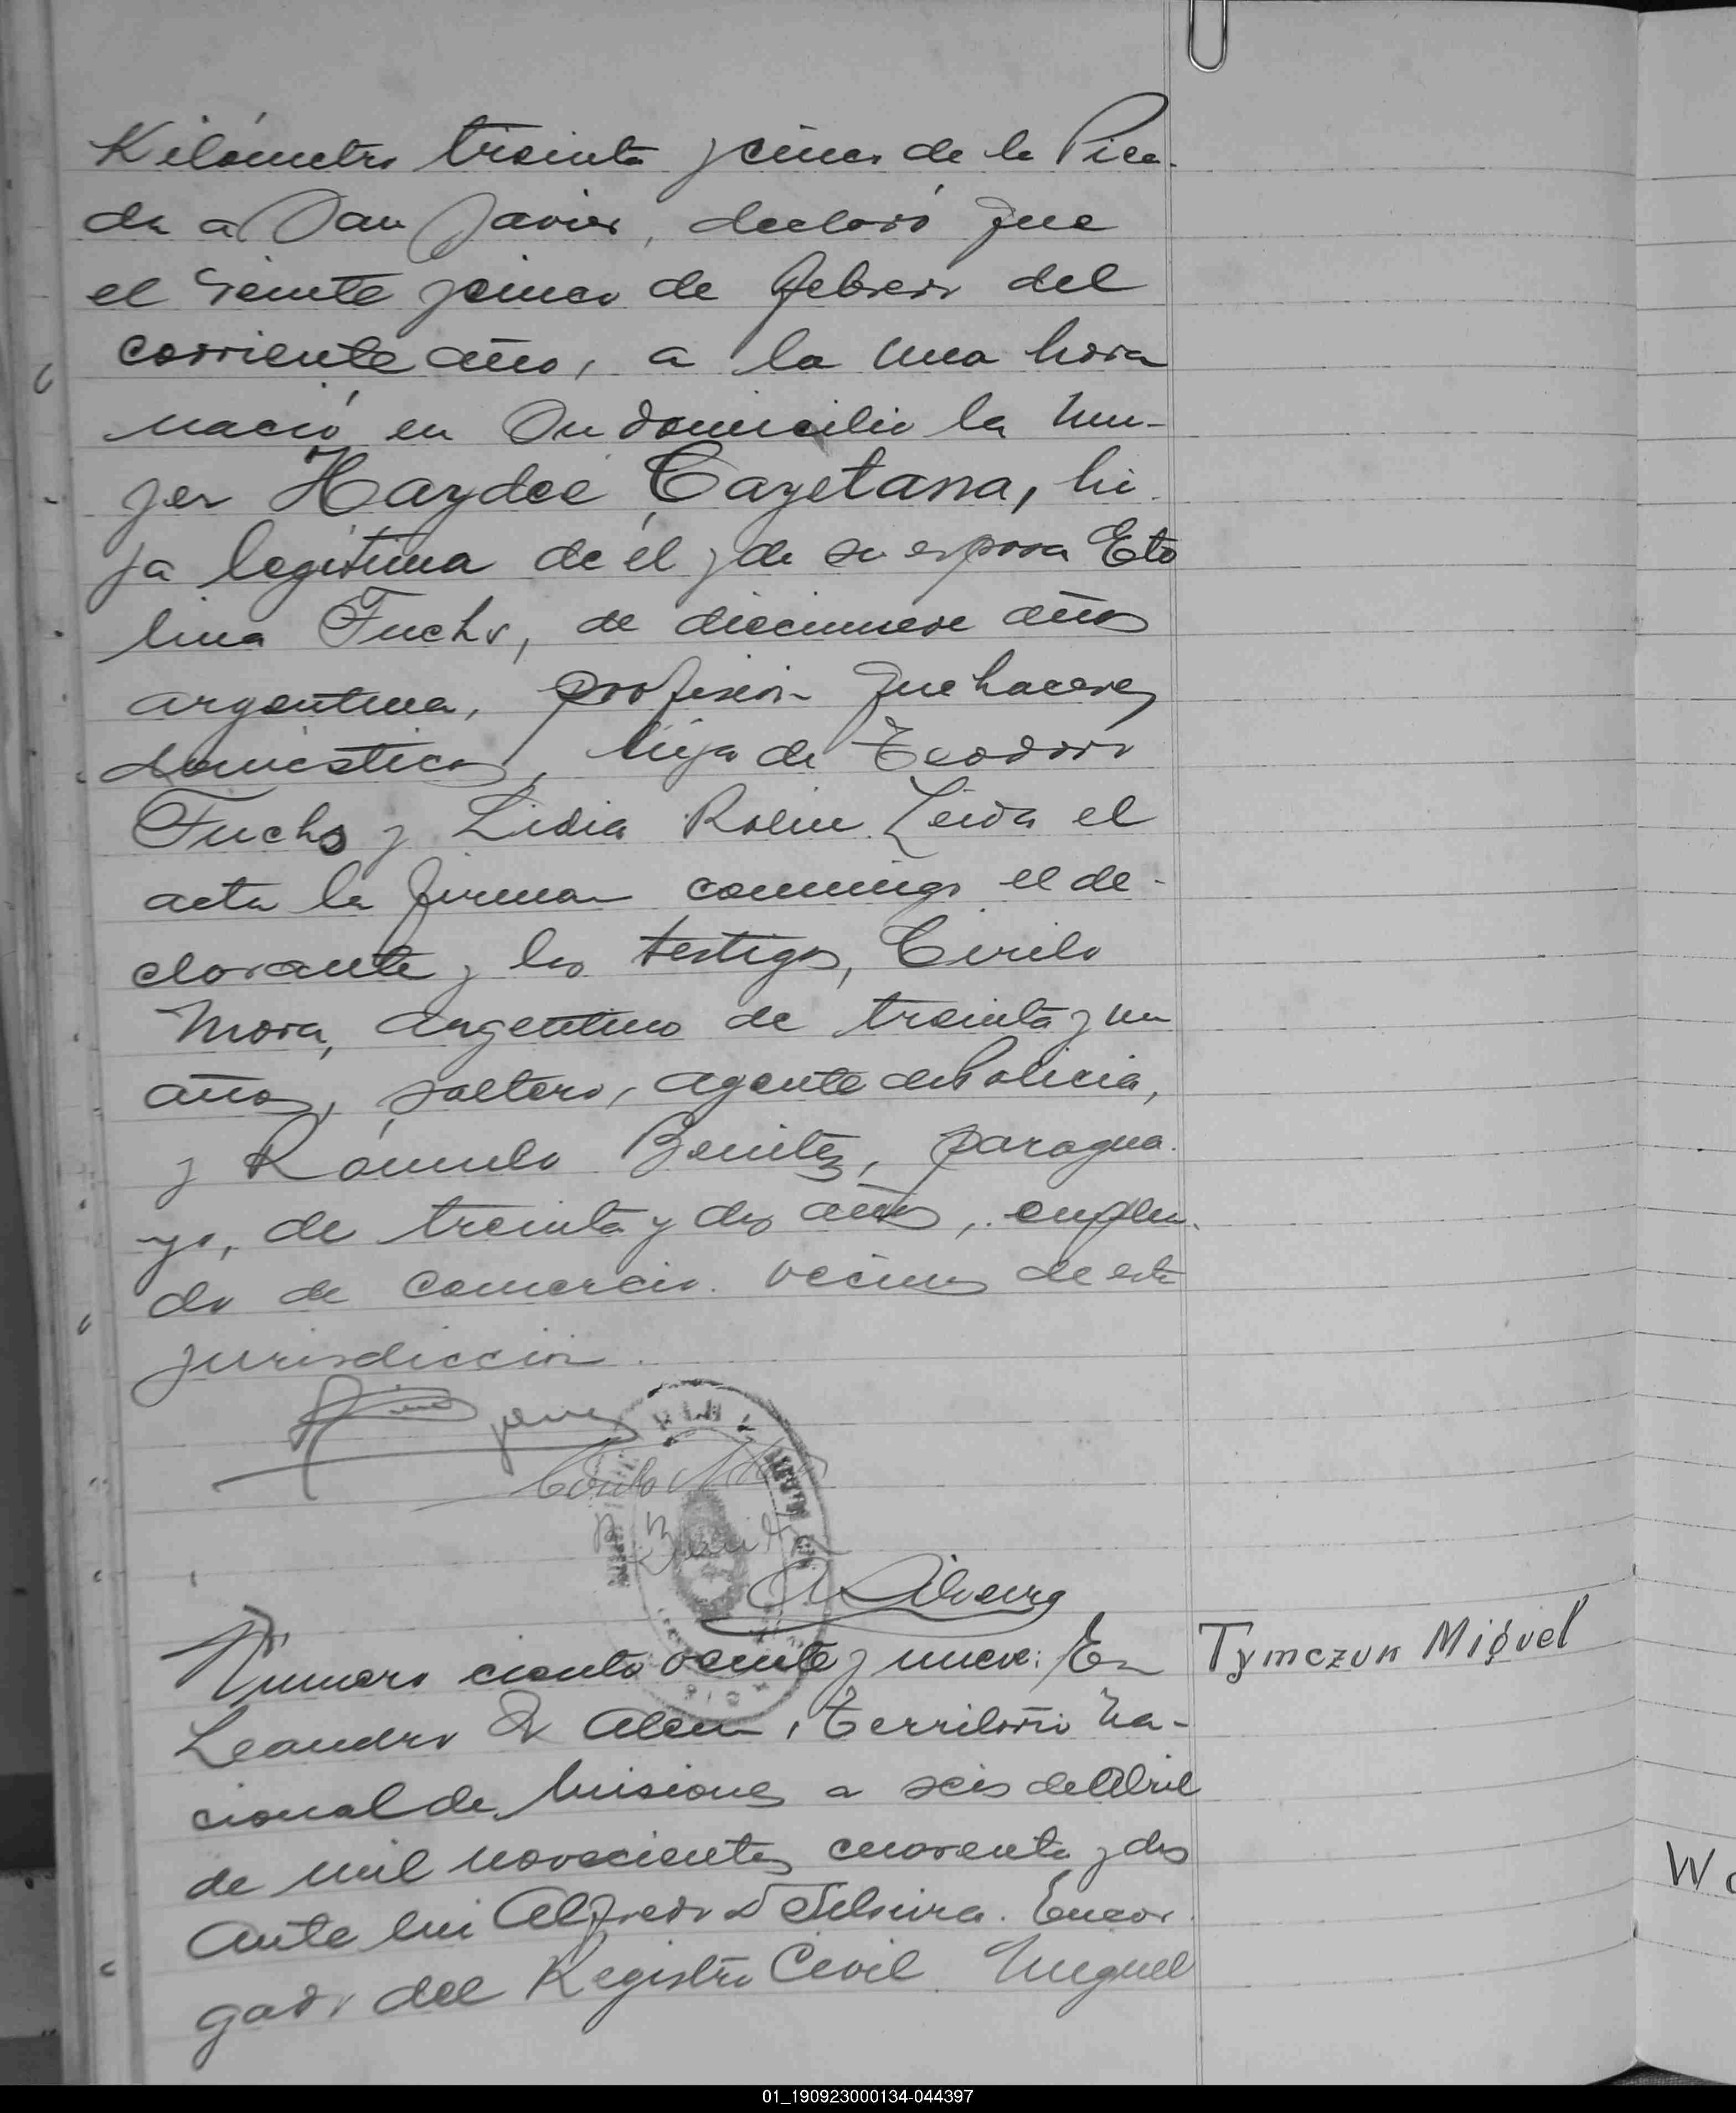 Kilómetro treinta y cinco de la Pica-
da a San Javier, declaró que
el veinte y cinco de febrero del
corriente año, a la una hora
nació en su domicilio la mu-
jer Haydeé Cayetana, hi-
ja legítima de él y de su esposa Eto
lina Fuchs, de diecinueve años
argentina, profesión quehaceres
domésticos, hija de Teodoro
Fuchs y Lidia Rolin. Leida el
acta la firman conmigo el de-
clarante y los testigos, Cirilo
Mora, argentino de treinta y un
años, soltero, agente de Policia,
y Rómulo Benitez, paragua-
yo, de treinta y dos años, emplea-
do de comercio. vecinos de esta
jurisdicción.
Cirilo Mora
R Benitez
Numero ciento veinte y nueve: En
Tymczun Miguel
Leandro N Alem, territorio na-
cional de Misiones a seis de Abril
de mil novecientos cuarenta y dos
Ante mi Alfredo D Silveira. Encar
gado del Registro Civil Miguel
01_190923000134-044397